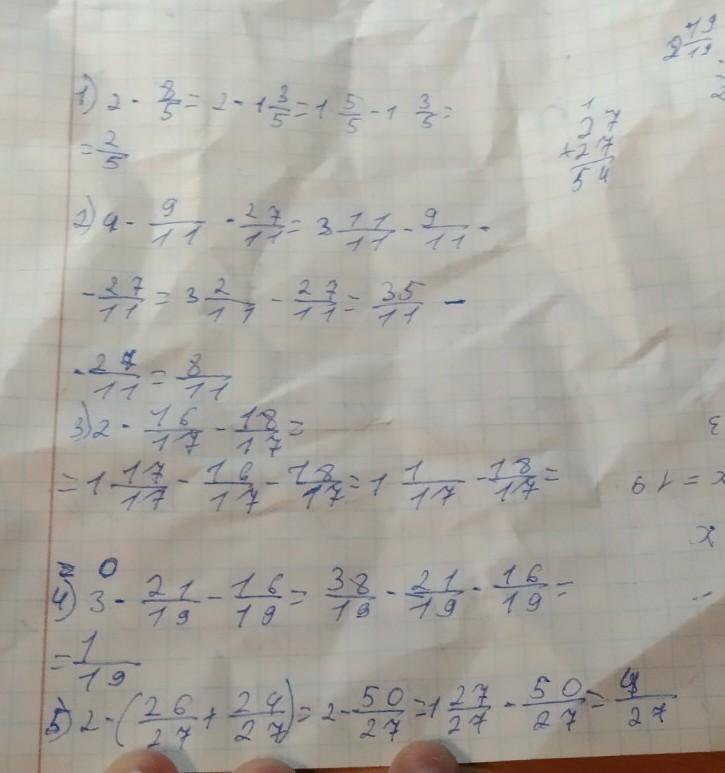 1) 2 - 8/5 = 2 - 1 3/5 = 1 5/5 - 1 3/5 =
= 2/5
2) 4 - 9/11 - 27/11 = 3 11/11 - 9/11 -
- 27/11 = 3 2/11 - 27/11 = 35/11 -
- 27/11 = 8/11
3) 2 - 16/17 - 18/17 =
= 1 17/17 - 16/17 - 18/17 = 1 1/17 - 18/17 =
= 0
4) 3 - 21/19 - 16/19 = 38/19 - 21/19 - 16/19 =
= 1/19
5) 2 - (26/27 + 24/27) = 2 - 50/27 = 1 27/27 - 50/27 = 4/27
1
27
+27
54
2 19/19
x = 19
x